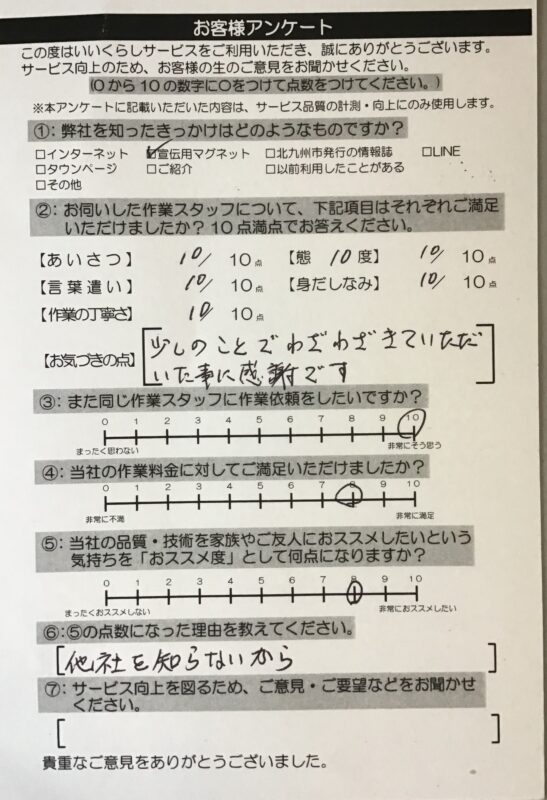 お客様アンケート
この度はいいくらしサービスをご利用いただき、誠にありがとうございます。
サービス向上のため、お客様の生のご意見をお聞かせください。
(0から10の数字に○をつけて点数をつけてください。)
※本アンケートに記載いただいた内容は、サービス品質の計測・向上にのみ使用します。
①：弊社を知ったきっかけはどのようなものですか？
□インターネット ☑宣伝用マグネット □北九州市発行の情報誌 □LINE
□タウンページ □ご紹介 □以前利用したことがある
□その他
②：お伺いした作業スタッフについて、下記項目はそれぞれご満足
いただけましたか？10点満点でお答えください。
【あいさつ】 10/ 10点 【態 10 度】 10/ 10点
【言葉遣い】 10/ 10点 【身だしなみ】 10/ 10点
【作業の丁寧さ】 10/ 10点
【お気づきの点】 少しのことでわざわざきていただ
いた事に感謝です
③：また同じ作業スタッフに作業依頼をしたいですか？
0 1 2 3 4 5 6 7 8 9 10
まったく思わない 非常にそう思う
④：当社の作業料金に対してご満足いただけましたか？
0 1 2 3 4 5 6 7 8 9 10
非常に不満 非常に満足
⑤：当社の品質・技術を家族やご友人におススメしたいという
気持ちを「おススメ度」として何点になりますか？
0 1 2 3 4 5 6 7 8 9 10
まったくおススメしない 非常におススメしたい
⑥：⑤の点数になった理由を教えてください。
他社を知らないから
⑦：サービス向上を図るため、ご意見・ご要望などをお聞かせ
ください。
貴重なご意見をありがとうございました。